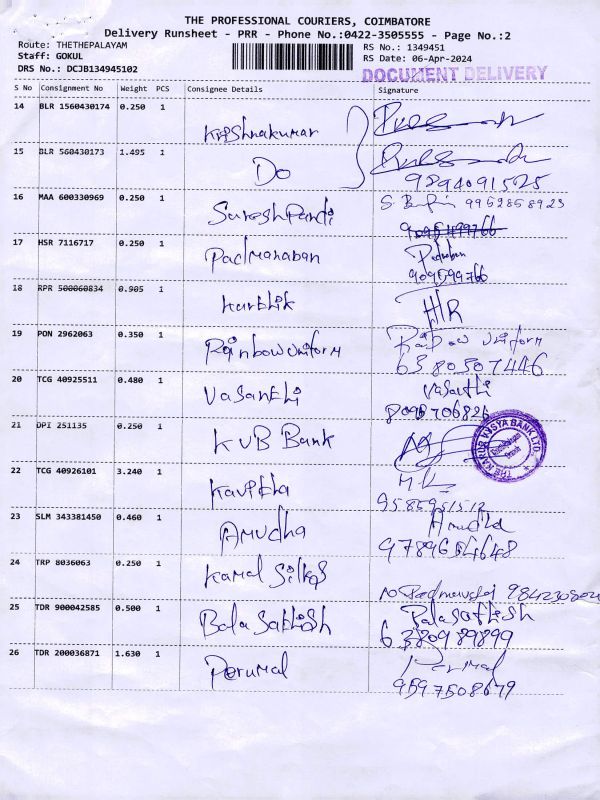 THE PROFESSIONAL COURIERS, COIMBATORE
Delivery Runsheet - PRR - Phone No.:0422-3505555 - Page No.:2
Route: THETHEPALAYAM
Staff: GOKUL
DRS No.: DCJB134945102
RS No.: 1349451
RS Date: 06-Apr-2024
DOCUMENT DELIVERY
S No Consignment No Weight PCS Consignee Details Signature
14 BLR 1560430174 0.250 1 Krishnakumar
15 BLR 560430173 1.495 1 Do
9894091525
16 MAA 600330969 0.250 1 SureshPandi 9952858923
17 HSR 7116717 0.250 1 Padmanaban
909599766
18 RPR 500060834 0.905 1 Karthik
19 PON 2962063 0.350 1 Rainbow uniform Rainbow uniform
6380507446
20 TCG 40925511 0.480 1 Vasanthi Vasanthi
21 DPI 251135 0.250 1 KVB Bank
THE KARUR VYSYA BANK LTD.
22 TCG 40926101 3.240 1 Kavitha
9585951512
23 SLM 343381450 0.460 1 Amudha Amudha
9789654648
24 TRP 8036063 0.250 1 Kamal Silks
25 TDR 900042585 0.500 1 Bala Sathish Balasathish
6380989899
26 TDR 200036871 1.630 1 Perumal Perumal
9597508679